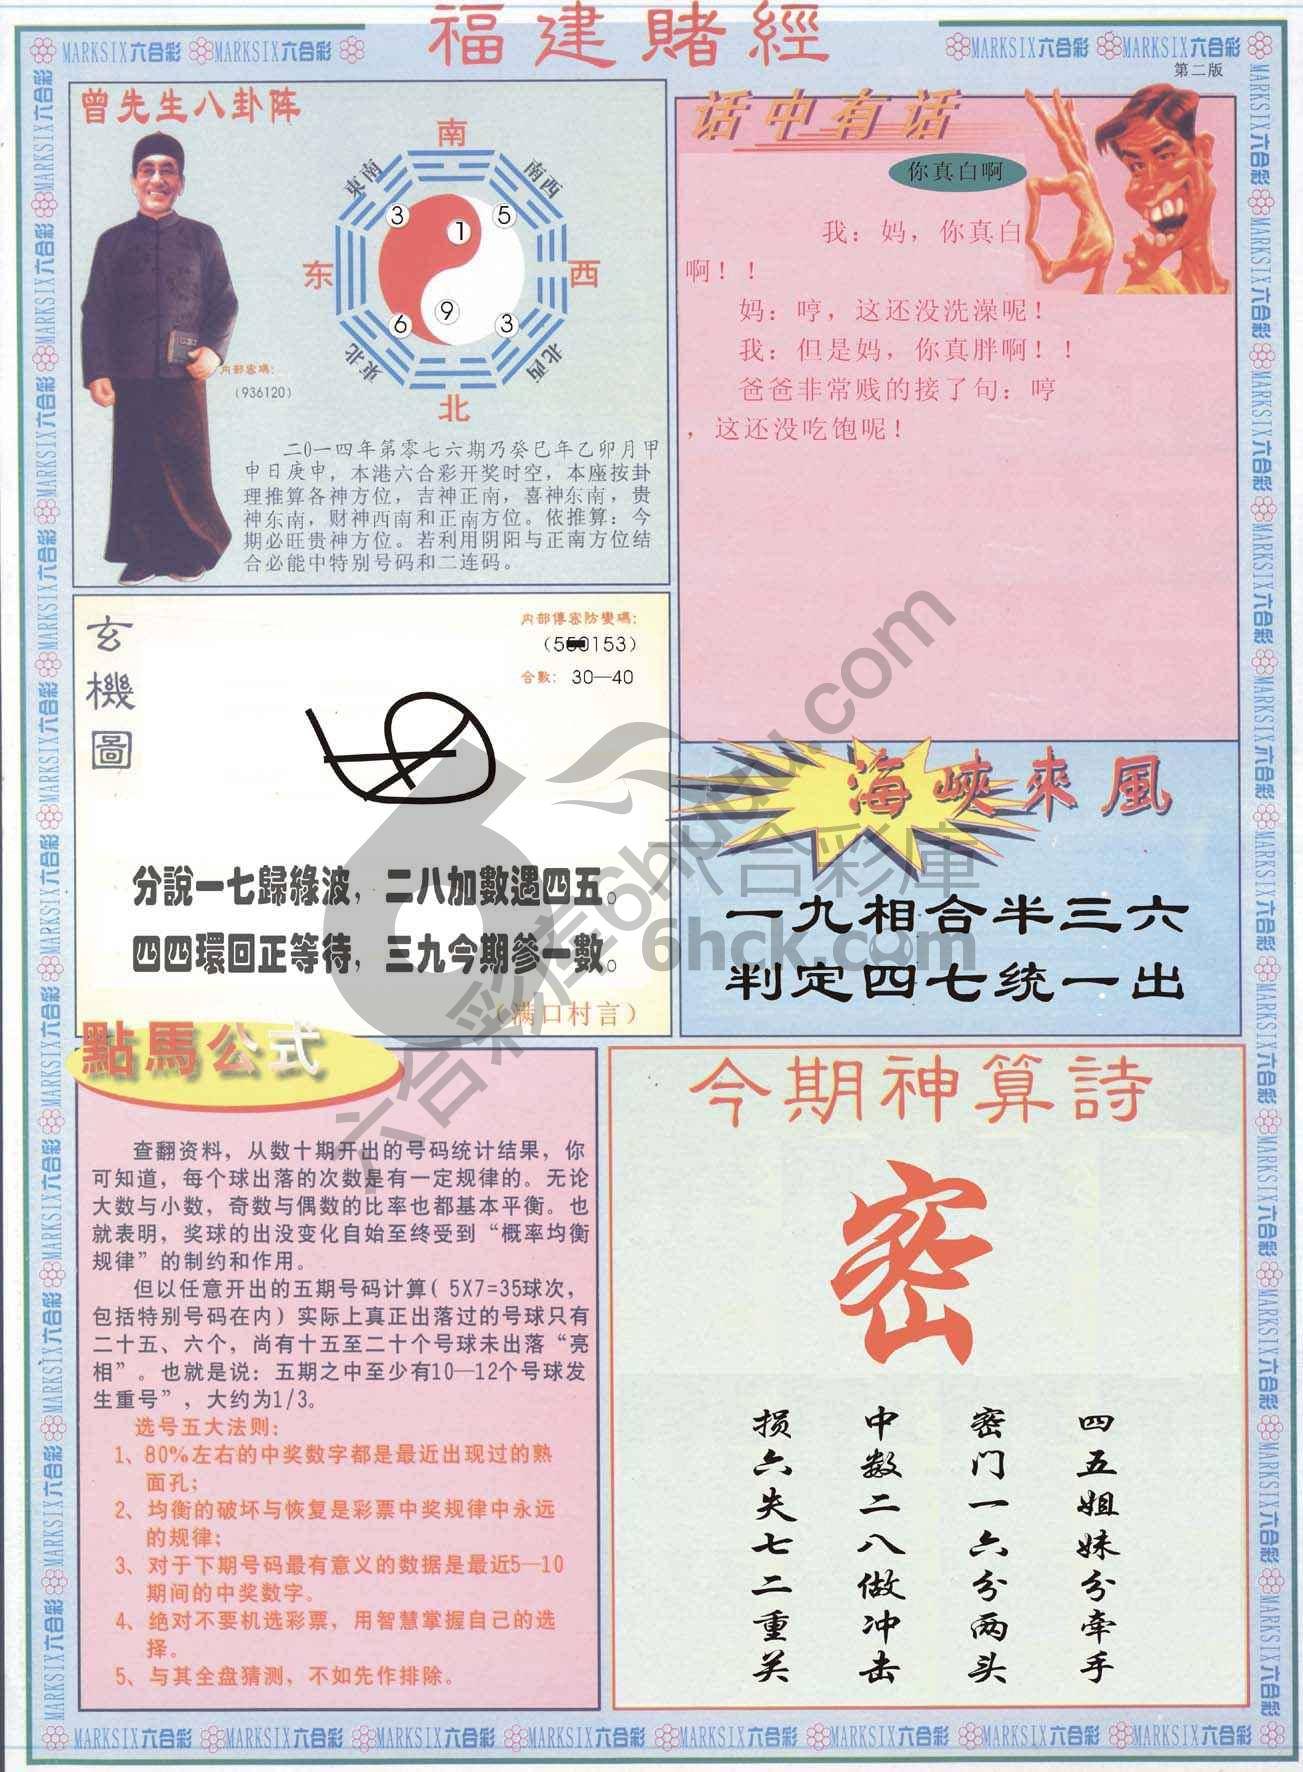 福建賭經
MARKSIX六合彩 MARKSIX六合彩
MARKSIX六合彩 MARKSIX六合彩
第二版
曾先生八卦阵
南
東南
南西
3
1
5
东
西
6
9
3
東北
北西
北
内部密碼:
(936120)
二0一四年第零七六期乃癸巳年乙卯月甲
申日庚申，本港六合彩开奖时空，本座按卦
理推算各神方位，吉神正南，喜神东南，贵
神东南，财神西南和正南方位。依推算：今
期必旺贵神方位。若利用阴阳与正南方位结
合必能中特别号码和二连码。
话中有话
你真白啊
我：妈，你真白
啊！！
妈：哼，这还没洗澡呢！
我：但是妈，你真胖啊！！
爸爸非常贱的接了句：哼
，这还没吃饱呢！
玄機圖
内部傳密防變碼:
合數: 30—40
分說一七歸綠波，二八加數遇四五。
四四環回正等待，三九今期參一數。
（满口村言）
海峽來風
一九相合半三六
判定四七统一出
點馬公式
查翻资料，从数十期开出的号码统计结果，你
可知道，每个球出落的次数是有一定规律的。无论
大数与小数，奇数与偶数的比率也都基本平衡。也
就表明，奖球的出没变化自始至终受到“概率均衡
规律”的制约和作用。
但以任意开出的五期号码计算( 5X7=35球次，
包括特别号码在内）实际上真正出落过的号球只有
二十五、六个，尚有十五至二十个号球未出落“亮
相”。也就是说：五期之中至少有10—12个号球发
生重号”，大约为1/3。
选号五大法则:
1、80%左右的中奖数字都是最近出现过的熟
面孔;
2、均衡的破坏与恢复是彩票中奖规律中永远
的规律;
3、对于下期号码最有意义的数据是最近5—10
期间的中奖数字。
4、绝对不要机选彩票，用智慧掌握自己的选
择。
5、与其全盘猜测，不如先作排除。
今期神算詩
密
四五姐妹分牵手
密门一六分两头
中数二八做冲击
损六失七二重关
六合彩库6hpudu.com
六合彩庫
6hck.com
MARKSIX六合彩 MARKSIX六合彩 MARKSIX六合彩 MARKSIX六合彩 MARKSIX六合彩 MARKSIX六合彩 MARKSIX六合彩 MARKSIX六合彩